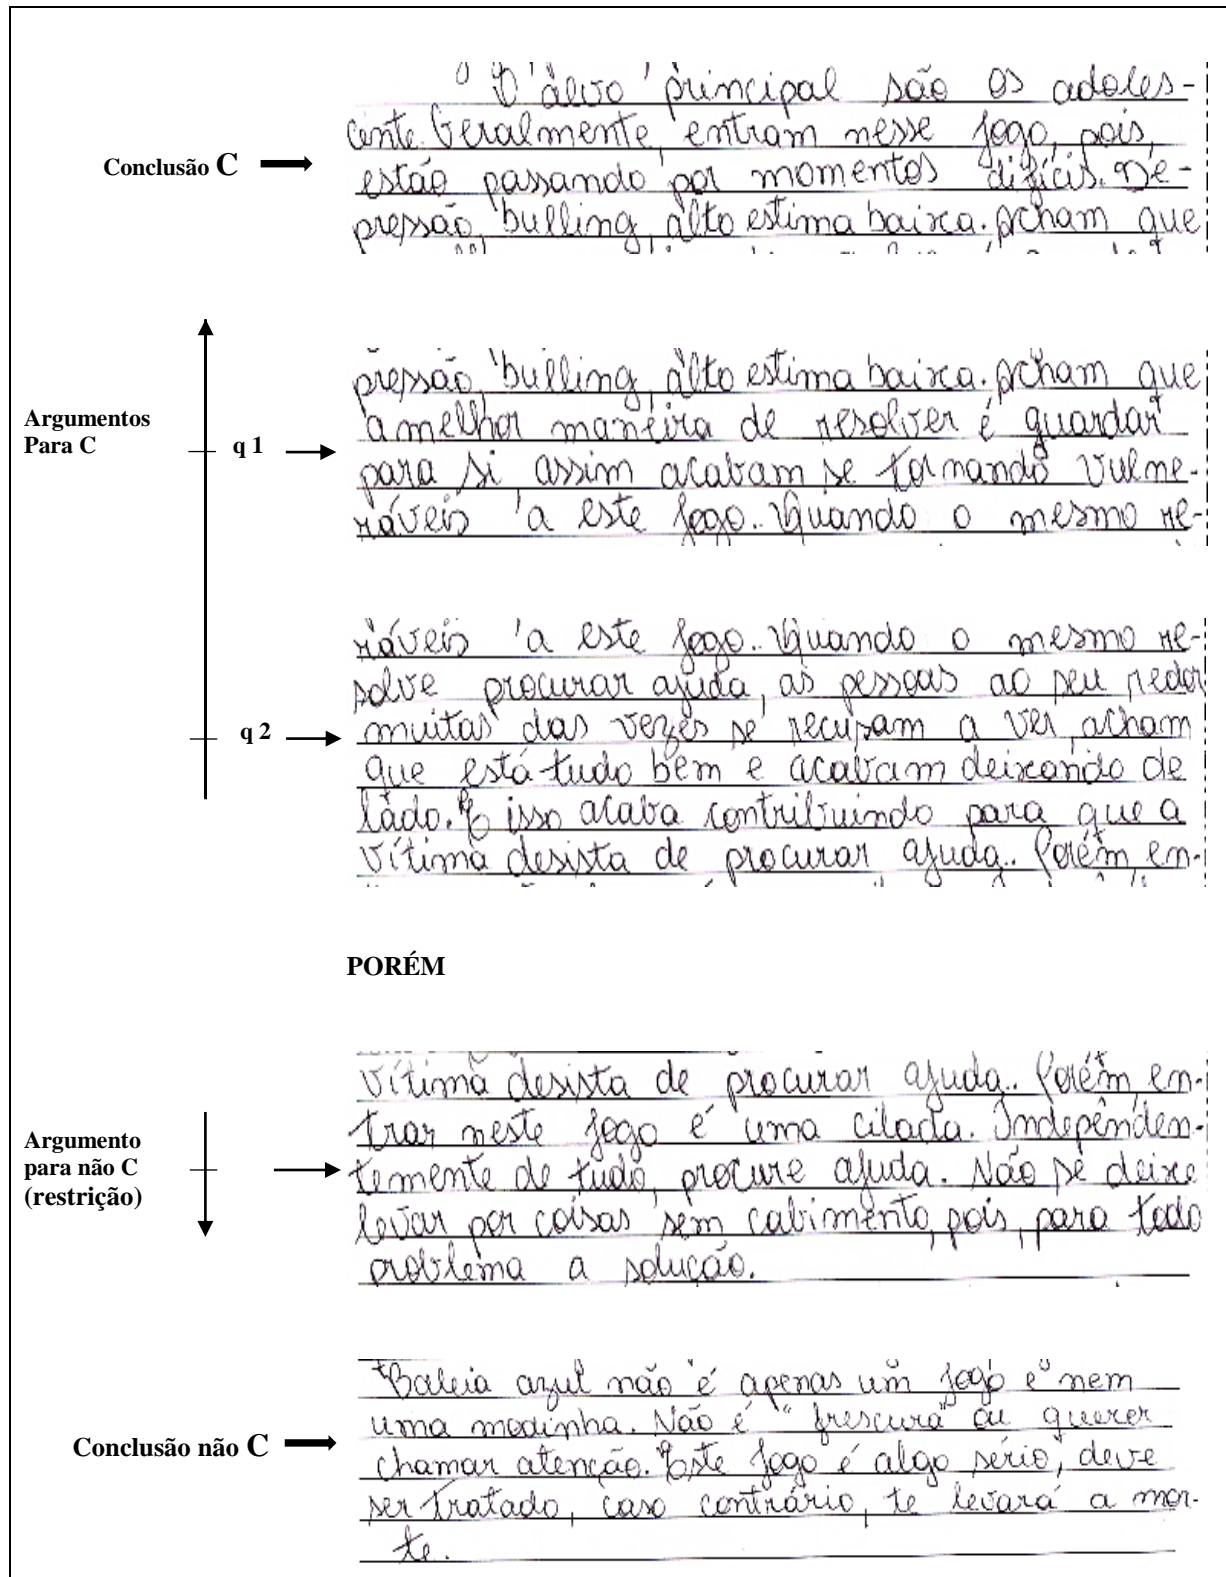 O alvo principal são os adoles-
cente. Geralmente, entram nesse jogo, pois,
Conclusão C
estão passando por momentos difícis. De-
pressão, bulling, alto estima baixa. Acham que
pressão, bulling, alto estima baixa. Acham que
Argumentos
Para C
q 1
a melhor maneira de resolver é guardar
para si assim acabam se tornando vulne-
ráveis à este jogo.. Quando o mesmo re-
ráveis à este jogo.. Quando o mesmo re-
solve procurar ajuda, as pessoas ao seu redor
q 2
muitas das vezes se recusam a ver, acham
que está tudo bem e acabam deixando de
lado. E isso acaba contribuindo para que a
vítima desista de procurar ajuda.. Porém, en-
PORÉM
vítima desista de procurar ajuda.. Porém, en-
trar neste jogo é uma cilada. Indepênden-
Argumento
para não C
(restrição)
temente de tudo, procure ajuda. Não se deixe
levar por coisas sem cabimento, pois, para todo
problema a solução.
Baleia azul não é apenas um jogo e nem
uma modinha. Não é "frescura" ou querer
Conclusão não C
chamar atenção. Este jogo é algo sério, deve
ser tratado, caso contrário, te levará a mor-
te.